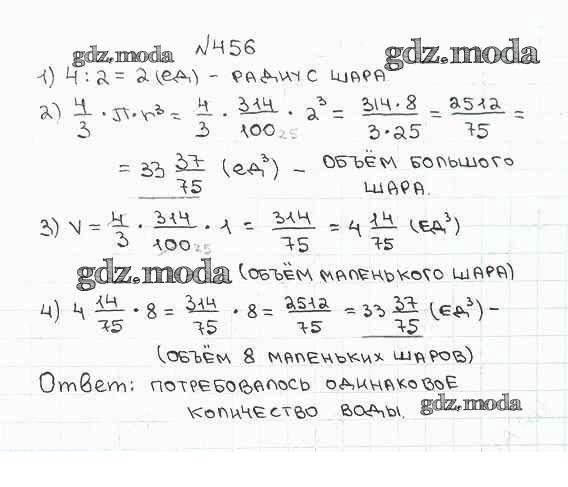 gdz.moda №456 gdz.moda
1) 4 : 2 = 2 (ед) - РАДИУС ШАРА
2) 4/3 · π · r³ = 4/3 · 314/100 25 · 2³ = 314 · 8/3 · 25 = 2512/75 =
= 33 37/75 (ед³) - ОБЪЁМ БОЛЬШОГО
ШАРА.
3) V = 4/3 · 314/100 25 · 1 = 314/75 = 4 14/75 (ЕД³)
gdz.moda (ОБЪЁМ МАЛЕНЬКОГО ШАРА)
4) 4 14/75 · 8 = 314/75 · 8 = 2512/75 = 33 37/75 (ЕД³) -
(ОБЪЁМ 8 МАЛЕНЬКИХ ШАРОВ)
Ответ: ПОТРЕБОВАЛОСЬ ОДИНАКОВОЕ
КОЛИЧЕСТВО ВОДЫ. gdz.moda